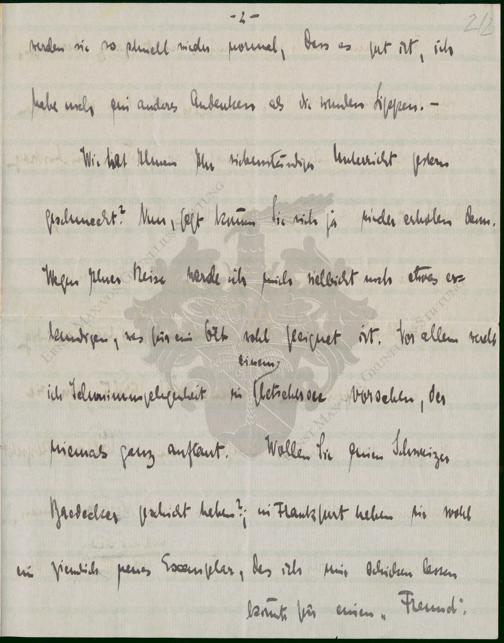 -2-
2/2
werden sie so schnell wieder normal, dass es gut ist, ich
habe noch ein anderes Andenken als die wunden Lippen. -
Wie hat Ihnen Ihr siebenstündiger Unterricht gestern
geschmeckt? Nun, jetzt können Sie sich ja wieder erholen davon.
Wegen Ihrer Reise werde ich mich vielleicht noch etwas er=
kundigen, was für ein Ort wohl geeignet ist. Vor allem werde
ich Schwimmgelegenheit in einem Gletschersee vorsehen, der
niemals ganz auftaut. Wollen Sie einen Schweizer
Baedecker geschickt haben?; in Frankfurt haben sie wohl
ein ziemlich neues Exemplar, das ich mir schicken lassen
könnte für einen „Freund".